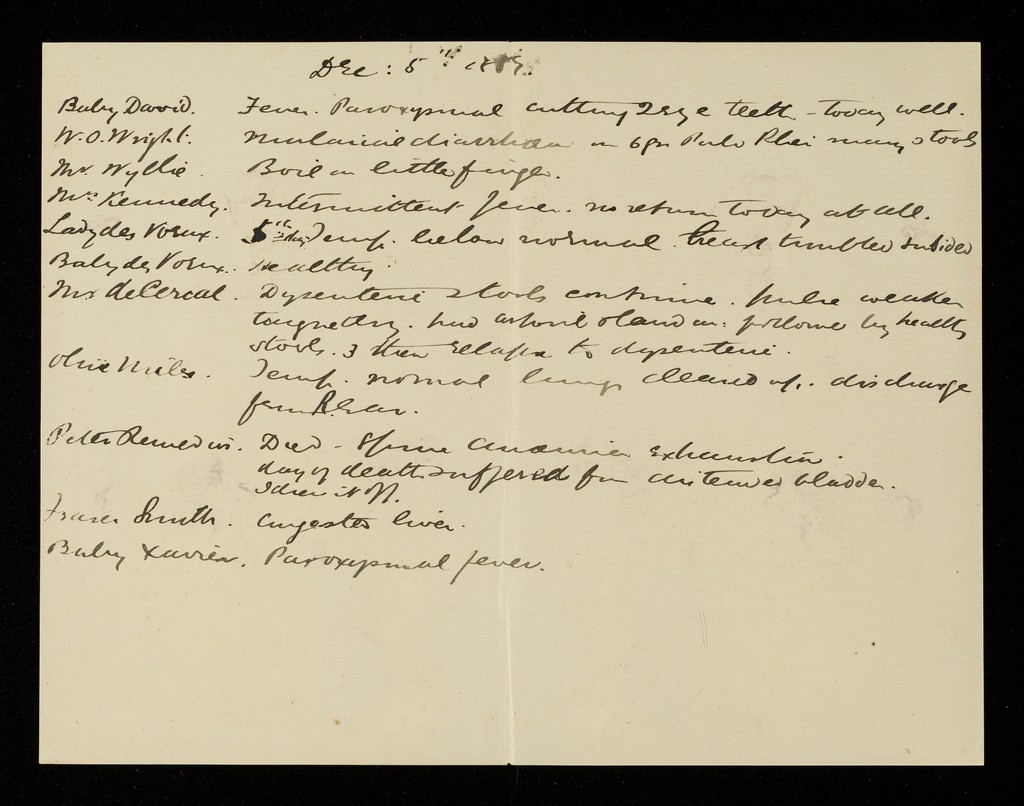 Dec: 5th 1889.
Baby David. Fever. Paroxysmal cutting 2 eye teeth - today well.
W.O. Wright. Malarial diarrhoea on 6 grs Pulv Rhei many stools
Mr. Wyllie. Boil on little finger.
Mrs Kennedy. Intermittent fever. no return today at all.
Lady des Voeux. 5th day Temp. below normal. heart subsided
Baby des Voeux. Healthy.
Mr de Cercal. Dysenteric stools continue. pulse weaker
tongue dry. had stools followed by healthy
stools. & then relapse to dysenteric.
Olive Miles. Temp. normal lungs cleared up. discharge
from R. Ear.
Peter Remedios. Died - Spine anaemia exhaustion.
day of death suffered from distended bladder.
I drew it off.
Fraser Smith. Congested liver.
Baby Xavier. Paroxysmal fever.